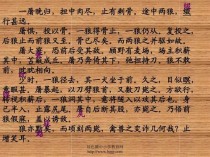 一屠晚归，担中肉尽，止有剩骨。途中两狼，缀
行甚远。
屠惧，投以骨。一狼得骨止，一狼仍从。复投之，
后狼止而前狼又至。骨已尽矣，而两狼之并驱如故。
屠大窘，恐前后受其敌。顾野有麦场，场主积薪
其中，苫蔽成丘。屠乃奔倚其下，弛担持刀。狼不敢
前，眈眈相向。
少时，一狼径去，其一犬坐于前。久之，目似瞑，
意暇甚。屠暴起，以刀劈狼首，又数刀毙之。方欲行，
转视积薪后，一狼洞其中，意将隧入以攻其后也。身
已半入，止露尻尾。屠自后断其股，亦毙之。乃悟前
狼假寐，盖以诱敌。
狼亦黠矣，而顷刻两毙，禽兽之变诈几何哉？止
增笑耳。